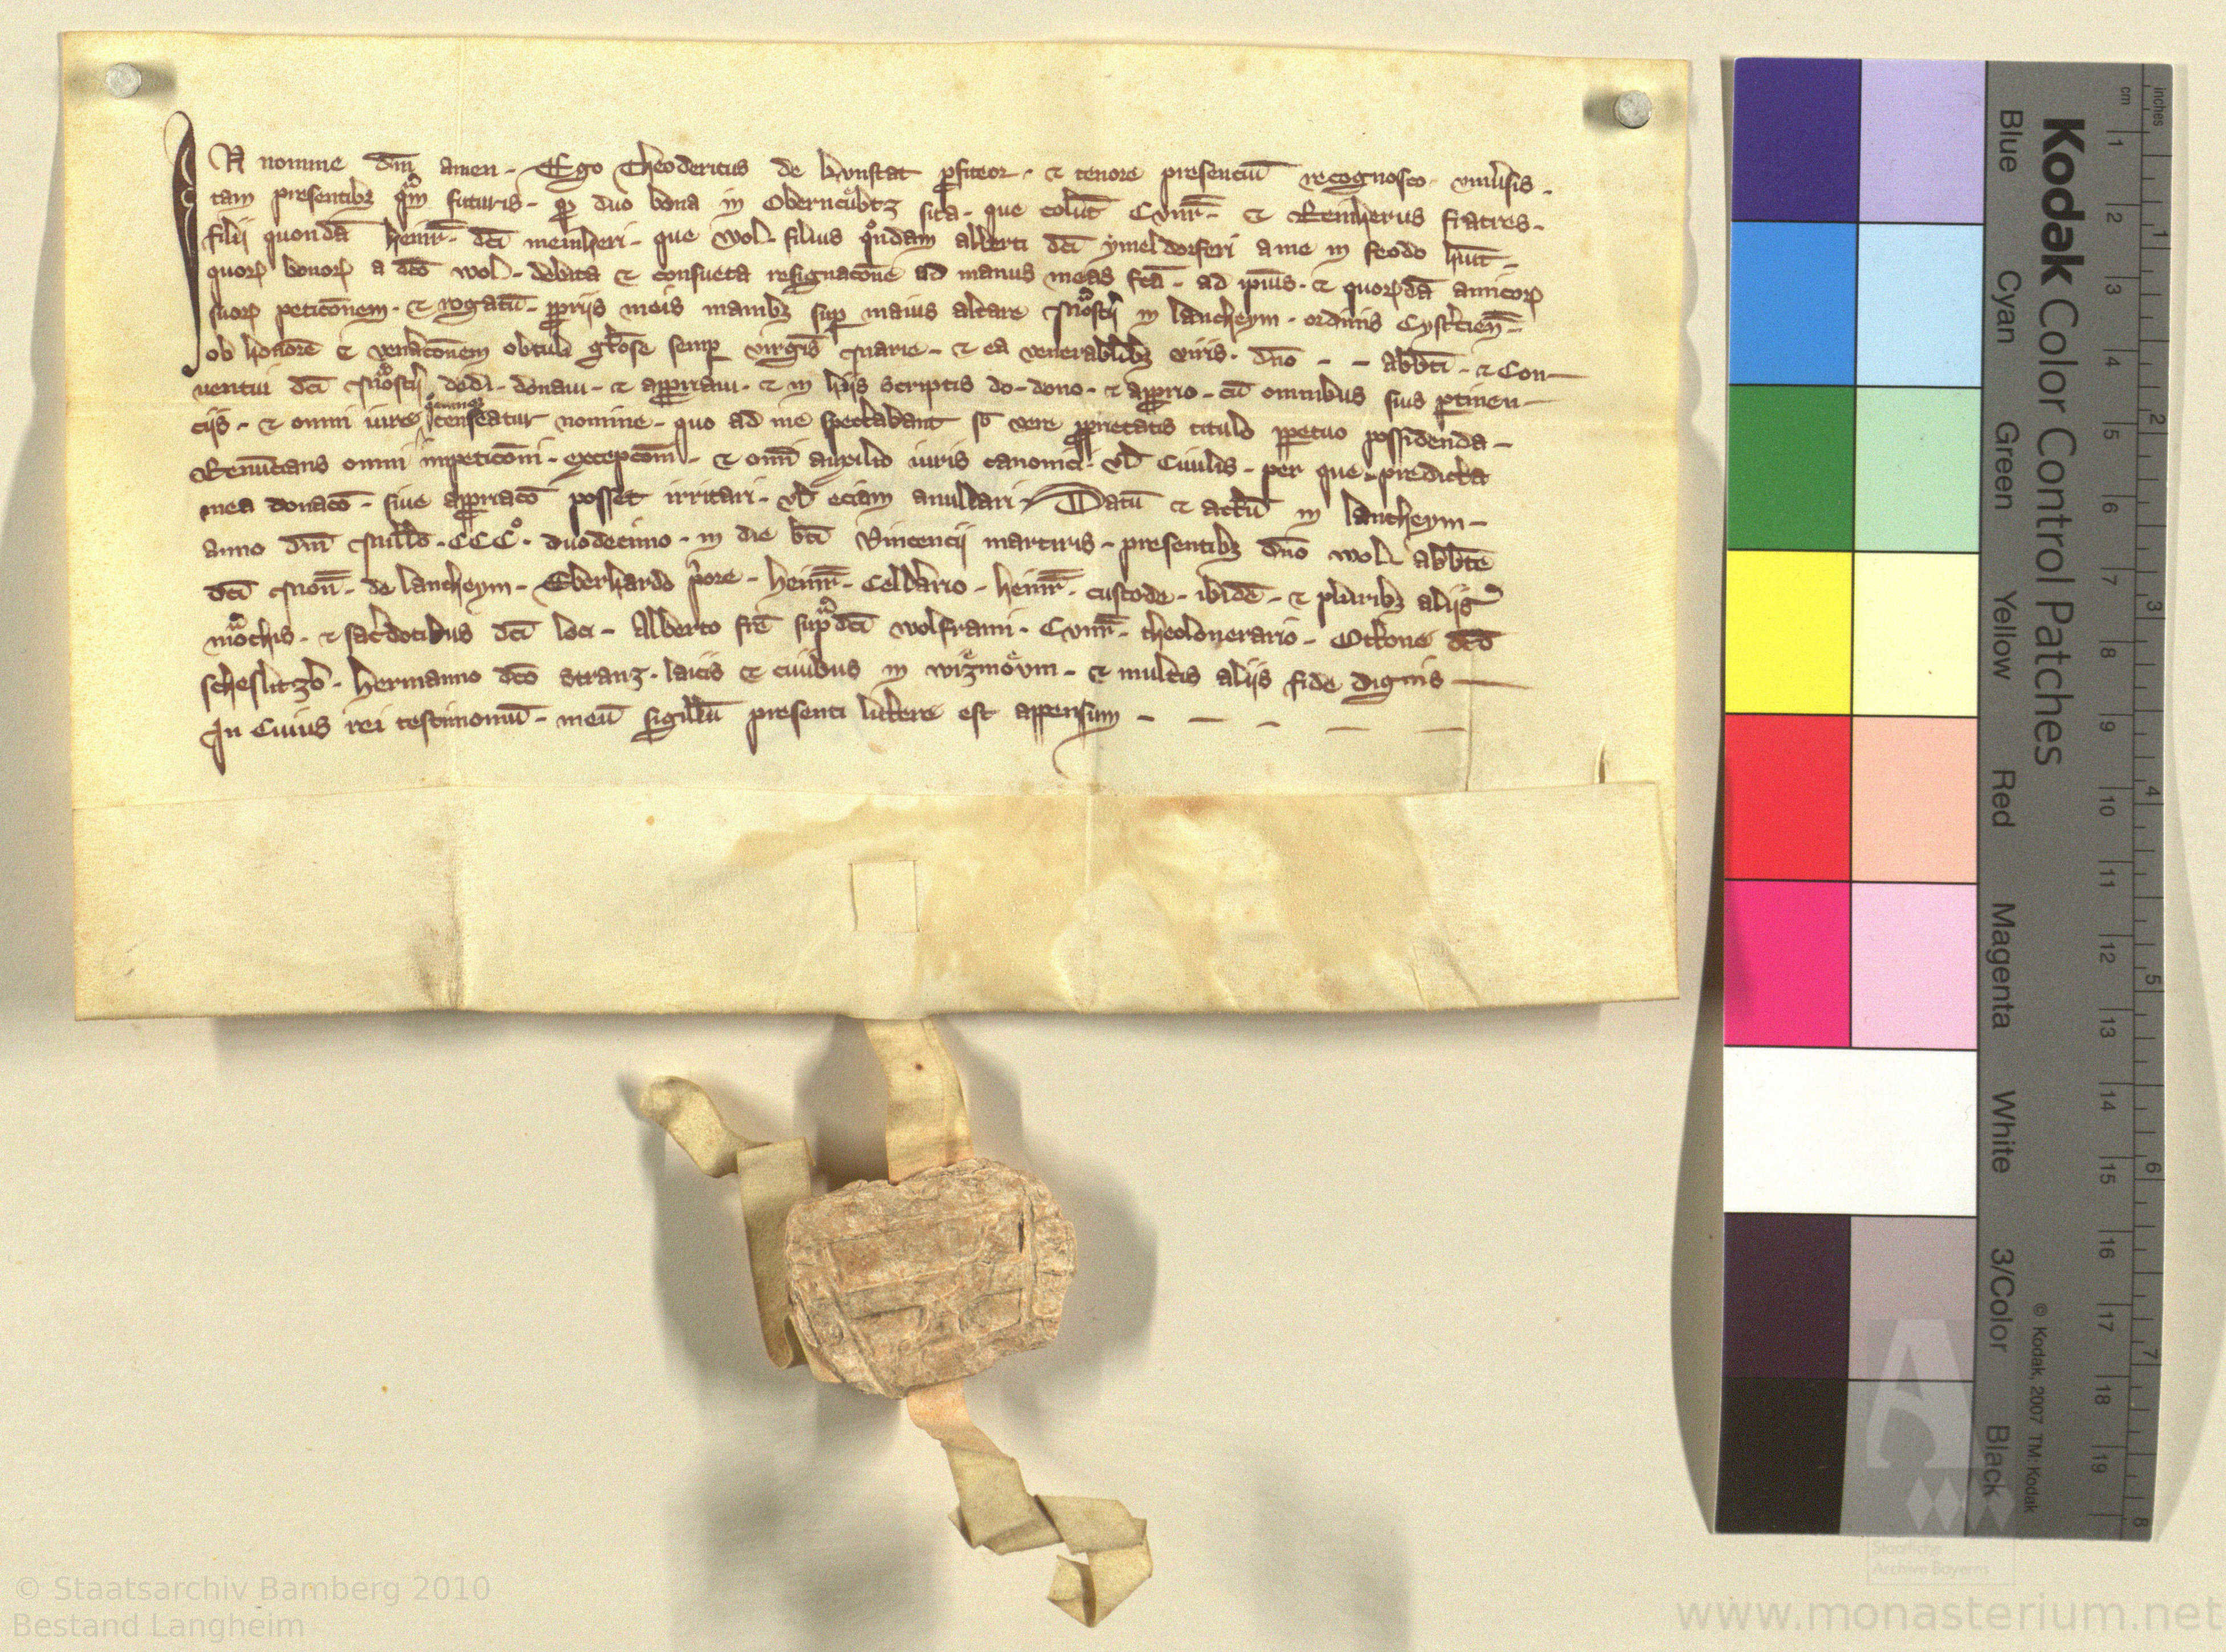 IN nomine dn̄i amen. Ego Theodericus de kvnstat ꝓfiteor. et tenore presenciū recognosco vniu̓sis.
tam presentibꝫ qͣm futuris. ꝙ duo bona in Oberncv̊btz sita. que colūt Cvnr̄. et Reinherus fratres.
filij quondā heinr̄. dc̄i meinheri. que wol. filius qͦndam alberti dc̄i ymeldorferi a me in feodo hn̄t.
quoꝝ bonoꝝ a dc̄o wol. debita et consueta resignacōne ad manus meas fc̄ā. ad ipīus. et quoꝝdā amicoꝝ
suoꝝ peticōnem. et rogatū. ꝓprijs meis manibꝫ suꝑ maius altare Mōstͥj in lancheym. ordinis Cyst̓cien̄.
ob honorē et ven̓acōnem obtuli gl̄ose semꝑ virgīs Marie. et ea venerabl̓ibꝫ viris. dn̄o - - abb̄ti. et Con-
uentui dc̄i Mōstͥj dedi. donaui. et aꝓpriaui. et in hijs scriptis do. dono. et aꝓprio. cū omnibus suis ꝑtinen-
cijs. et omni iure censeatur nomine. quo ad me spectabant sb̄ vere ꝓprietatis titulo ꝑpetuo possidenda.
Renūcians omni inpeticōni. excepcōni. et om̄i auxilio iuris canonici. vl̓ Ciuilis. per que predicta
mea donacō. siue aꝓpriacō posset irritari. vl̓ eciam anullari. Datū et actū in lancheym.
anno dn̄i Mill̄o. CCCͦ. duodecimo. in die bt̄i Vincencij martiris. presentibꝫ dn̄o wol. abb̄te
dc̄i Mon̄. de lancheym. Eberhardo p̓ore. heinr̄. Cell̓ario. heinr̄. custode. ibidē. et pl̓uribꝫ alijs
mōchis. et sac̓dotibus dc̄i loci. Alberto fr̄e supͣdc̄i wolframi. Cvnr̄. theolonerario. Ottone dc̄o
scheslitzͦ. hermanno dc̄o stranz. laicis et ciuibus in wizmoͤvm. et multis alijs fide dignis
In Cuius rei testimoniū. meū sigillū presenti littere est appensum - - - - -
Kodak Color Control Patches
Blue Cyan Green Yellow Red Magenta White 3/Color Black
© Kodak, 2007 TM: Kodak
cm 1 2 3 4 5 6 7 8 9 10 11 12 13 14 15 16 17 18 19
inches 1 2 3 4 5 6 7 8
Staatliche
Archive Bayerns
© Staatsarchiv Bamberg 2010
Bestand Langheim
www.monasterium.net